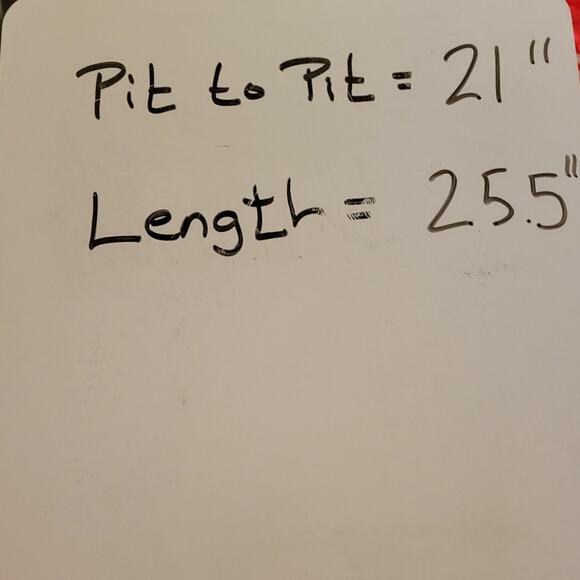 Pit to Pit = 21"
Length = 25.5"